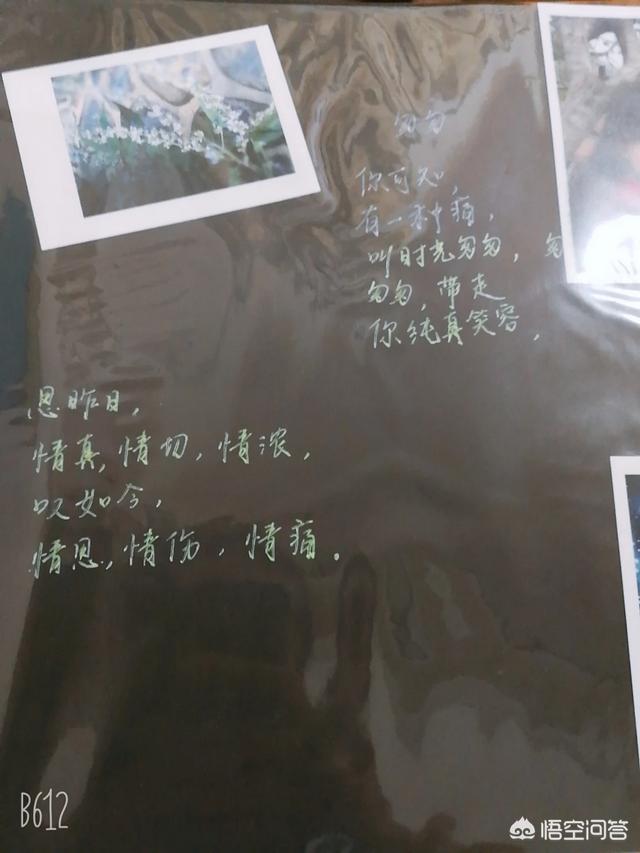 匆匆
你可知,
有一种痛,
叫时光匆匆, 匆
匆匆, 带走
你纯真笑容,
思昨日,
情真, 情切, 情浓,
叹如今,
情思, 情伤, 情痛。
B612
悟空问答